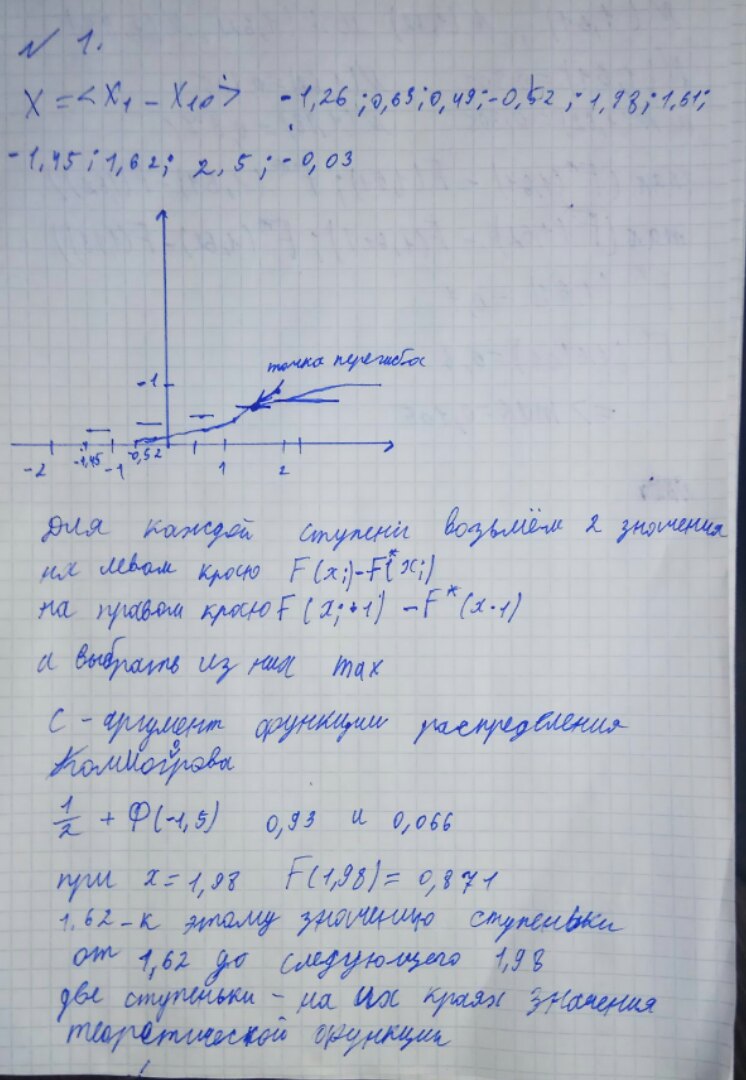 № 1.
X = <X1 - X10> -1,26 ; 0,63; 0,49; -0,52 ; 1,98; 1,61;
-1,45 ; 1,62; 2,5 ; -0,03
точка перегиба
-1
-2 -1,45 -1 -0,52 1 2
Для каждой ступени возьмём 2 значения
их левом краю F(xi)-F*(xi)
на правом краю F(xi+1) - F*(x-1)
и выбрать из них max
С - аргумент функции распредвления
Колмогорова
1/2 + Ф(-1,5) 0,93 и 0,066
при x = 1,98 F(1,98) = 0,871
1.62 - к этому значению ступеньки
от 1,62 до следующего 1,98
две ступеньки - на их краях значения
теоретической функции